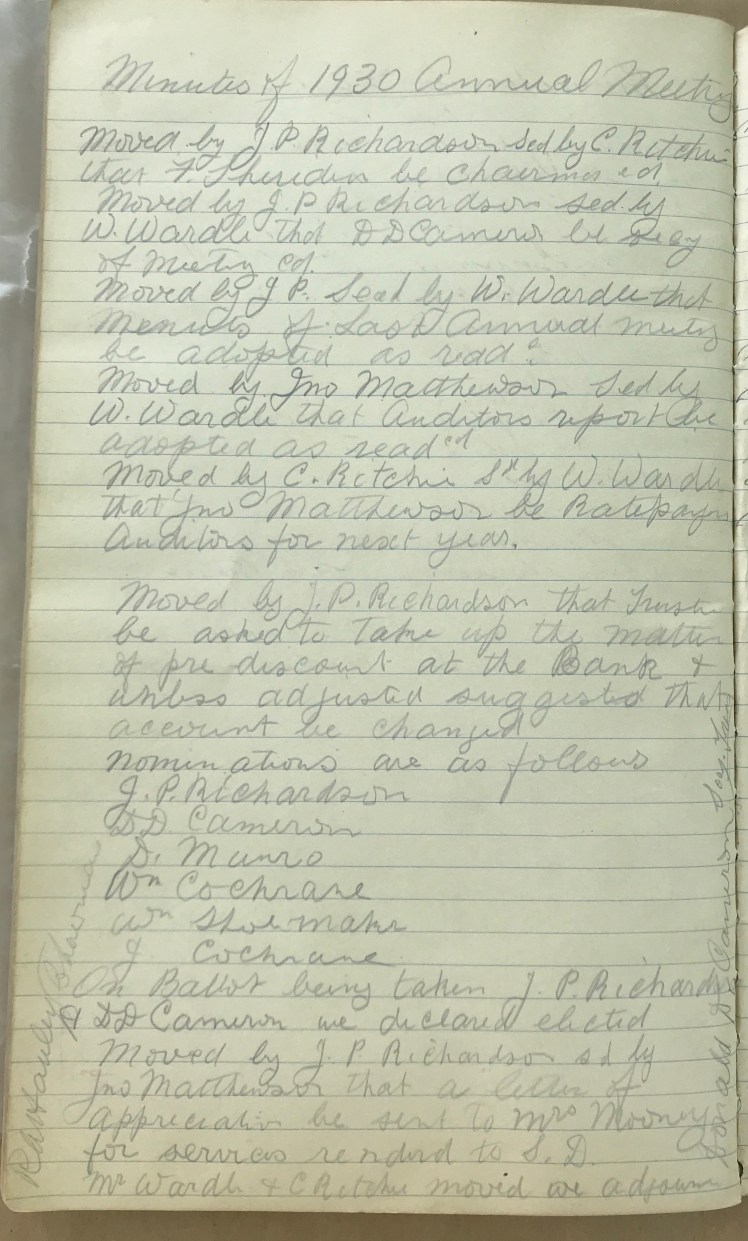 Minutes of 1930 Annual Meeting
Moved by J. P. Richardson Sed by C. Ritchie
that F. Sheridan be Chairman cd.
Moved by J. P. Richardson sed by
W. Wardle that D D Cameron be Secy
of Meeting cd.
Moved by J P. Secd by W. Wardle that
Menuts of Last Annual meeting
be adopted as read
Moved by Jno Matthewson Sed by
W. Wardle that Auditors report be
adopted as read cd
Moved by C. Ritchie Sd by W. Wardle
that Jno Matthewson be Ratepayers
Auditors for next year.
Moved by J. P. Richardson that Trustees
be asked to take up the matter
of pre discount at the Bank &
unless adjusted suggested that
account be changed
nominations are as follows
J. P. Richardson
D D. Cameron
D. Munro
Wm Cochrane
Wm Shoemaker
J Cochrane
On Ballot being taken J. P. Richardson
& D D Cameron we declared elected
Moved by J. P. Richardson sd by
Jno Matthewson that a letter of
appreciation be sent to Mrs Mooney
for services rendord to S. D.
Mr Wardle & C Ritchie moved we adjourn
Chairman
Donald D Cameron Secy.